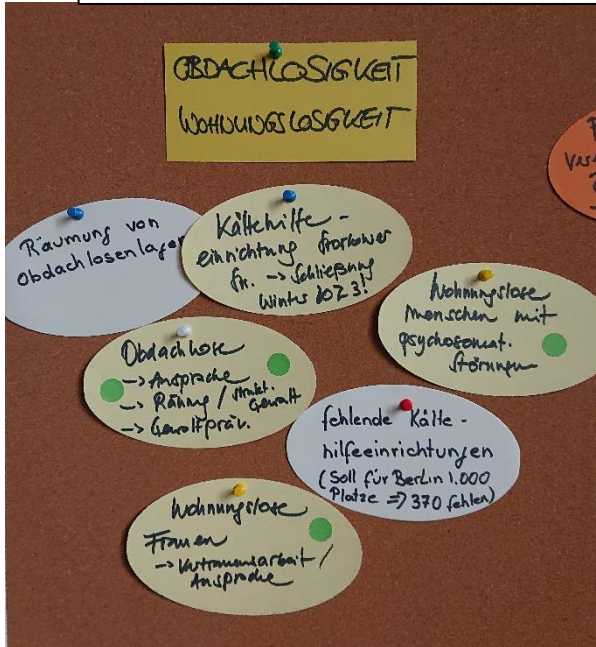 OBDACHLOSIGKEIT
WOHNUNGSLOSIGKEIT
Räumung von
Obdachlosenlager
Kältehilfe-
einrichtung Storkower
Str. -> Schließung
Winter 2023!
Wohnungslose
Menschen mit
psychosomat.
Störungen
Obdachlose
-> Ansprache
-> Räumung / strukt. Gewalt
-> Gewaltpräv.
fehlende Kälte-
hilfeeinrichtungen
(Soll für Berlin 1.000
Plätze => 370 fehlen)
Wohnungslose
Frauen
-> Vertrauensarbeit /
Ansprache